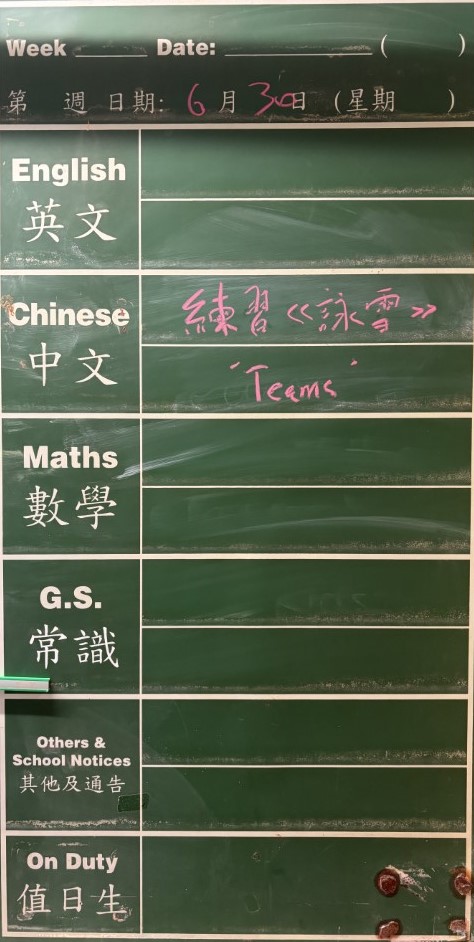 Week ______ Date: ____________ (          )
第 週 日期: 6 月 30 日 (星期    )
English
英文
Chinese
練習《詠雪》
中文
"Teams"
Maths
數學
G.S.
常識
Others &
School Notices
其他及通告
On Duty
值日生